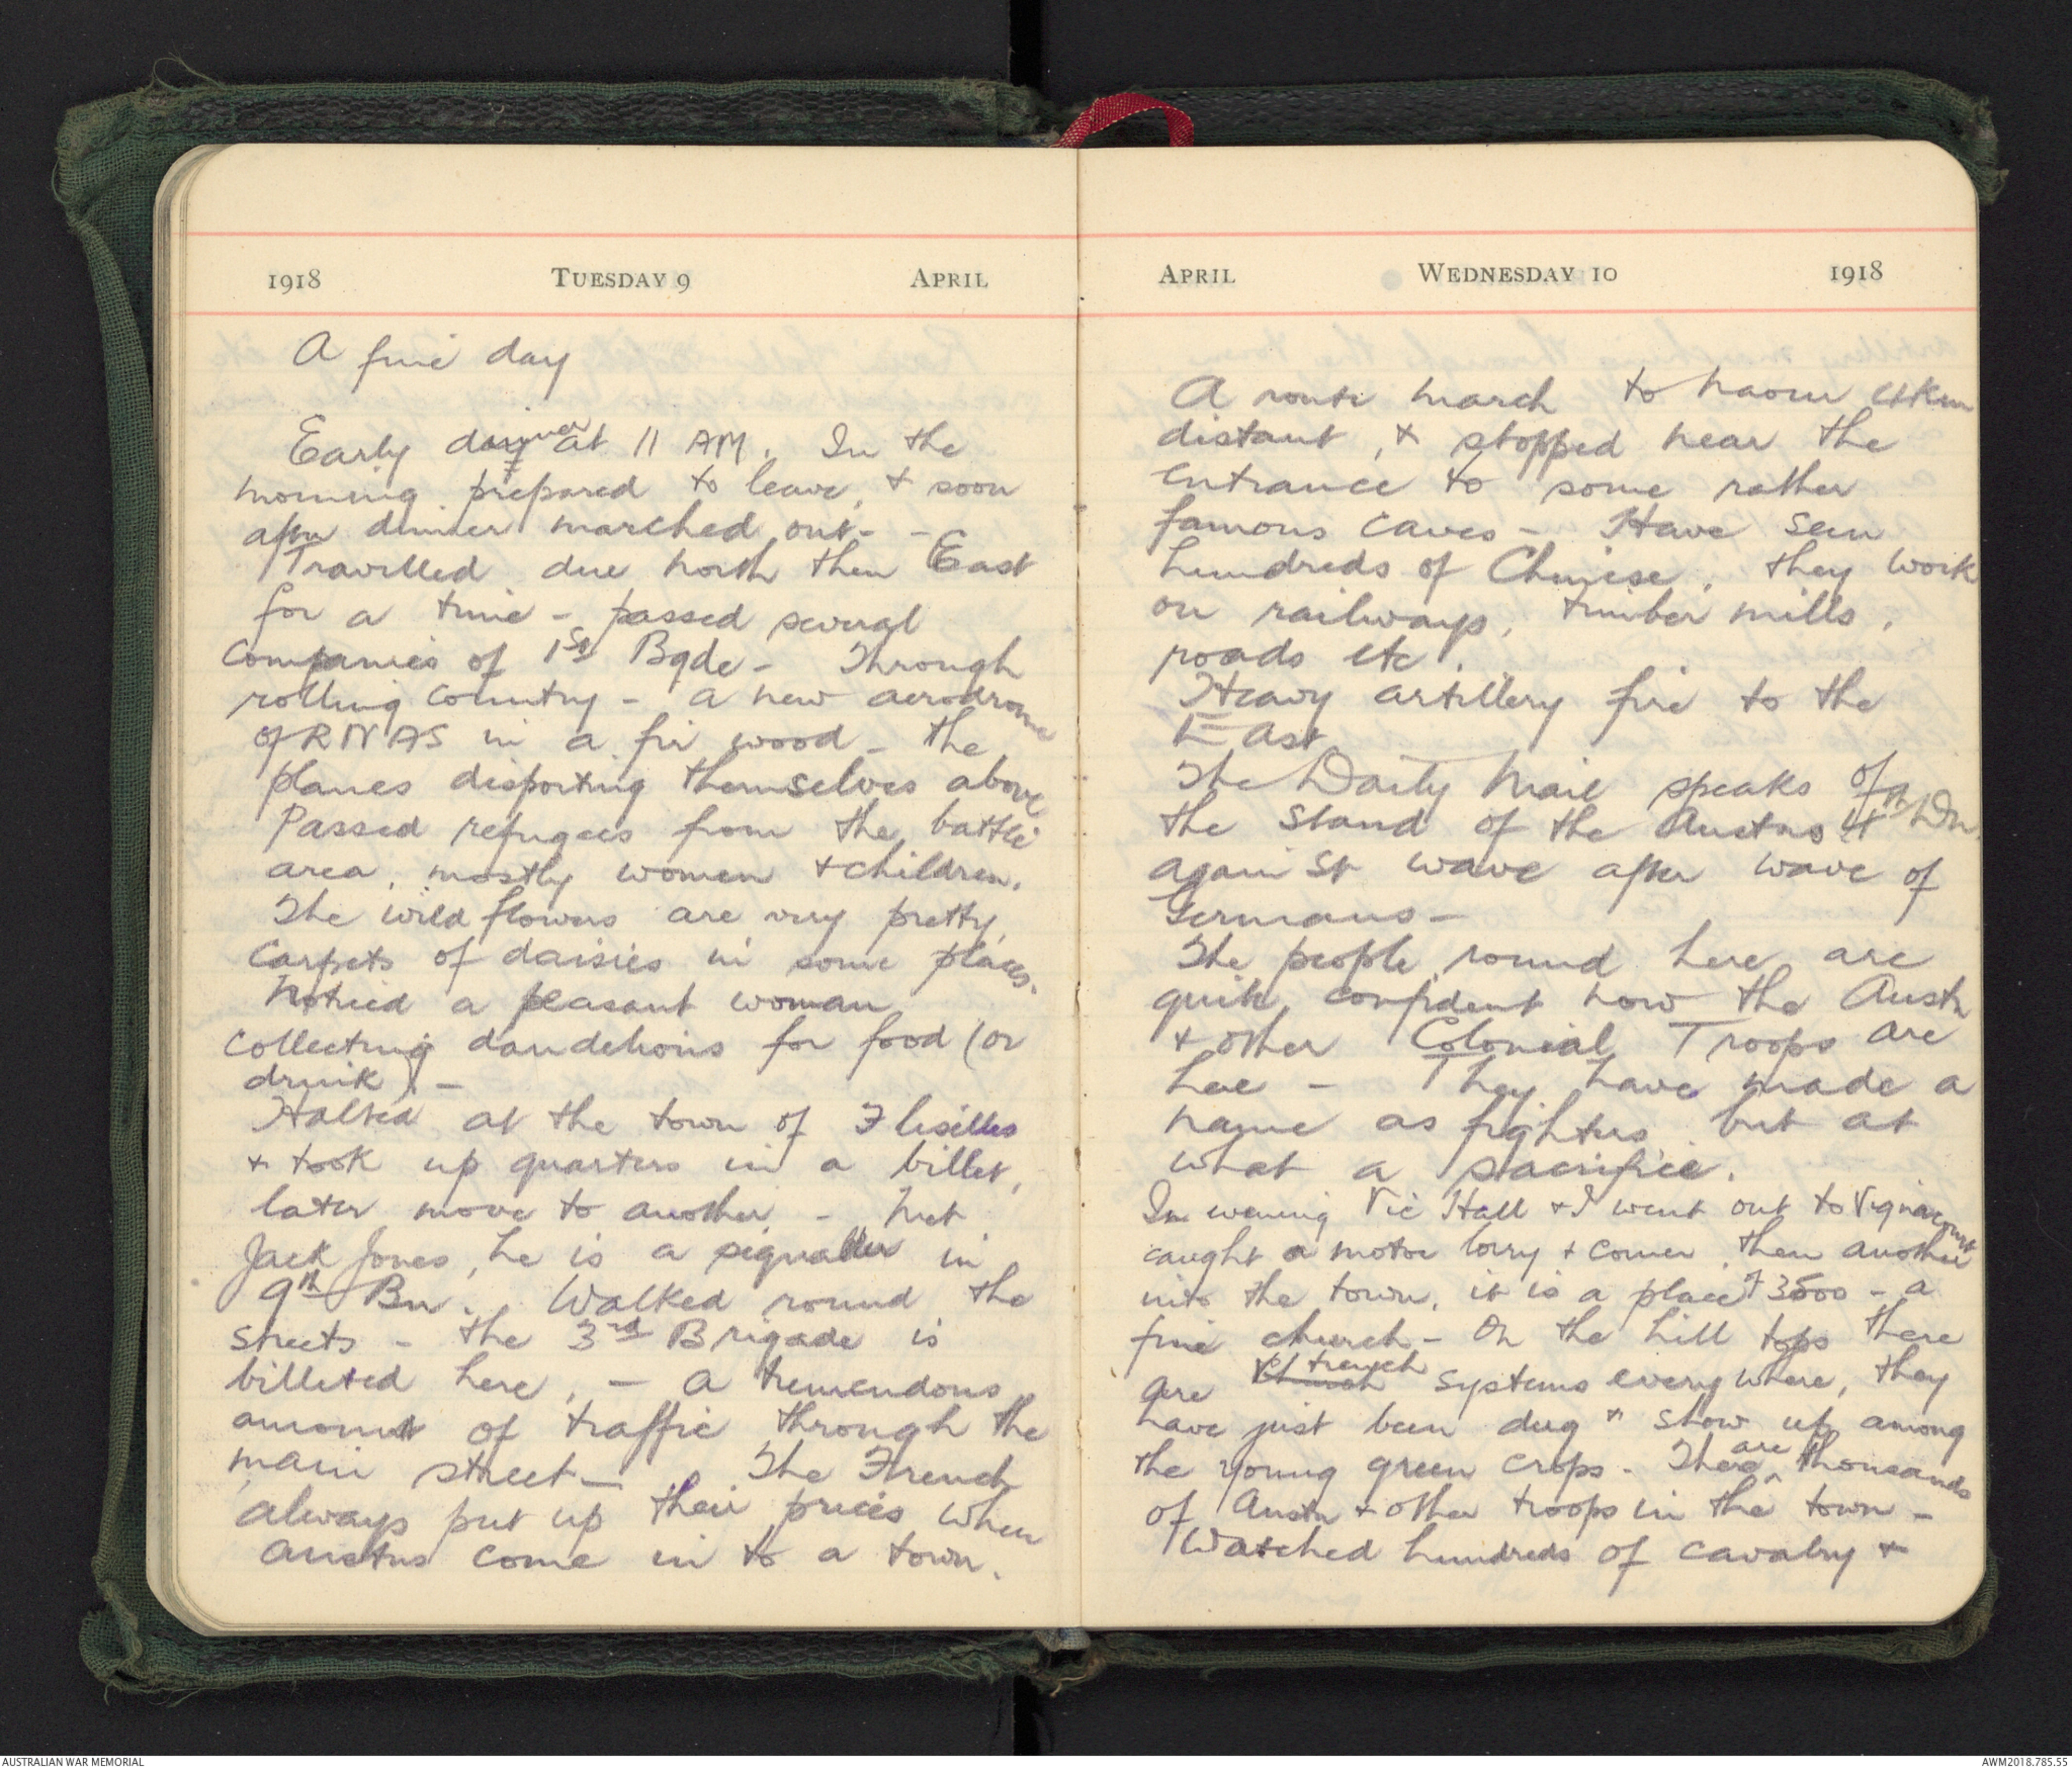 1918 TUESDAY 9 APRIL
A fine day
Early dinner at 11 AM. In the
morning prepared to leave, & soon
after dinner marched out - -
Travelled due north then East
for a time - passed several
Companies of 1st Bgde - Through
rolling country - a new aerodrome
of RNAS in a fir wood - the
planes disporting themselves above
Passed refugees from the battle
area, mostly women & children.
The wild flowers are very pretty,
Carpets of daisies in some places.
Noticed a peasant woman
collecting dandelions for food (or
drink). -
Halted at the town of Flesilles
& took up quarters in a billet,
later move to another. - Met
Jack Jones, he is a signaller in
9th Bn. Walked round the
streets - the 3rd Brigade is
billeted here, - a tremendous
amount of traffic through the
main street - The French
always put up their prices when
Austns come in to a town.
APRIL WEDNESDAY 10 1918
A route march to Naour 4km
distant, & stopped near the
entrance to some rather
famous caves - Have seen
hundreds of Chinese, they work
on railways, timber mills,
roads etc.
Heavy artillery fire to the
East
The Daily Mail speaks of
the stand of the Austns 4th Dn.
against wave after wave of
Germans -
The people round here are
quite confident now the Austn
& other Colonial Troops are
here - They have made a
name as fighters but at
what a sacrifice.
In evening Vic Hall & I went out to Vignacourt
caught a motor lorry & corner, then another
into the town, it is a place of 3500 - a
fine church - On the hill tops there
are trench systems everywhere, they
have just been dug & show up among
the young green crops. There are thousands
of Austn & other troops in the town -
Watched hundreds of cavalry &
AUSTRALIAN WAR MEMORIAL
AWM2018.785.55